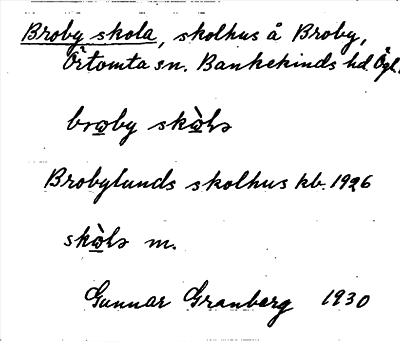 Broby skola, skolhus å Broby,
Örtomta sn. Bankekinds hd Ögl.
broby skòlə
Brobylunds skolhus kb. 1926
skòlə m.
Gunnar Granberg 1930